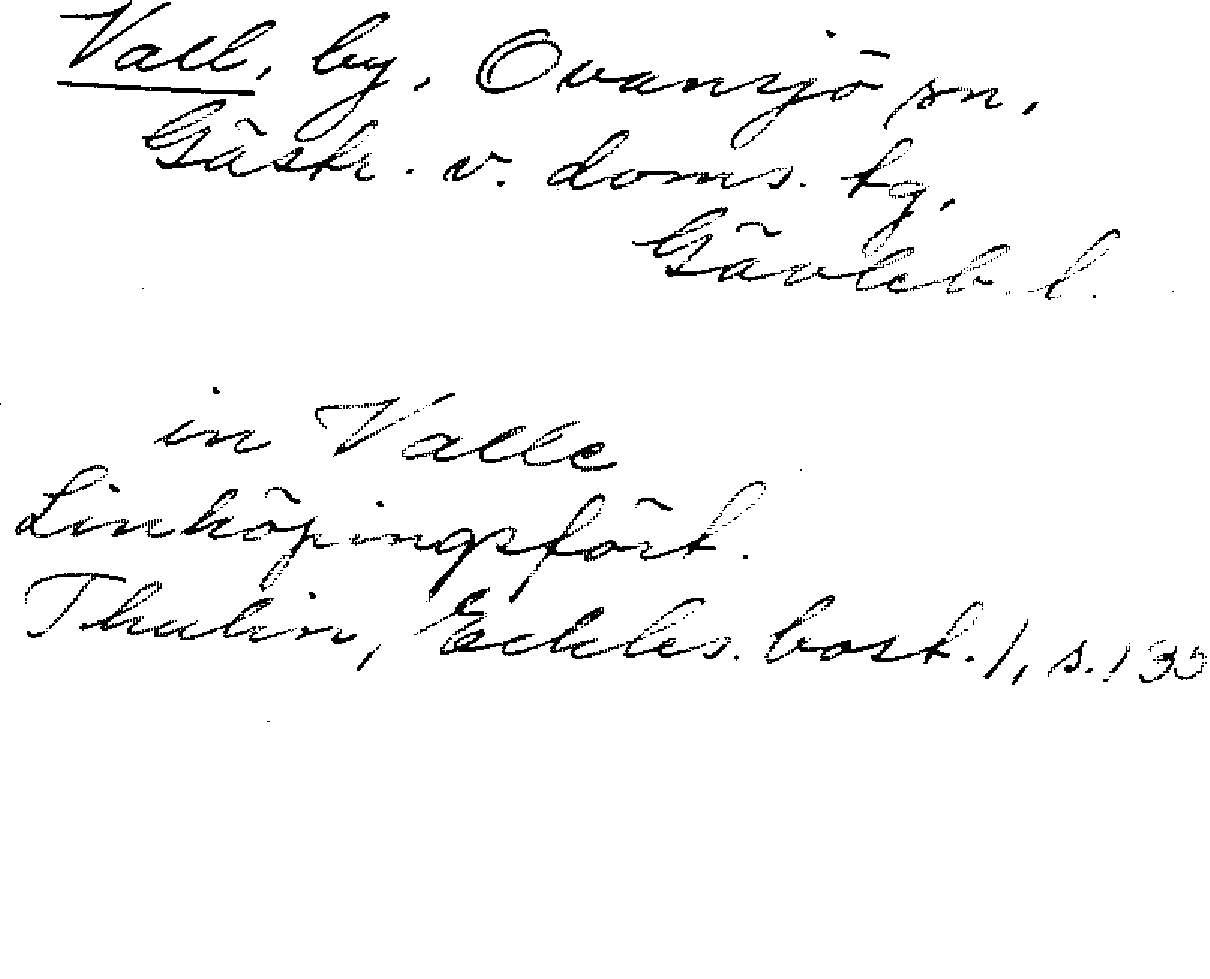 Vall, by, Ovansjö sn,
Gästr. v. doms. tg,
Gävleb. l.
in Valle
Linköpingsfört.
Thulin, Eckles. bost. 1, s. 135